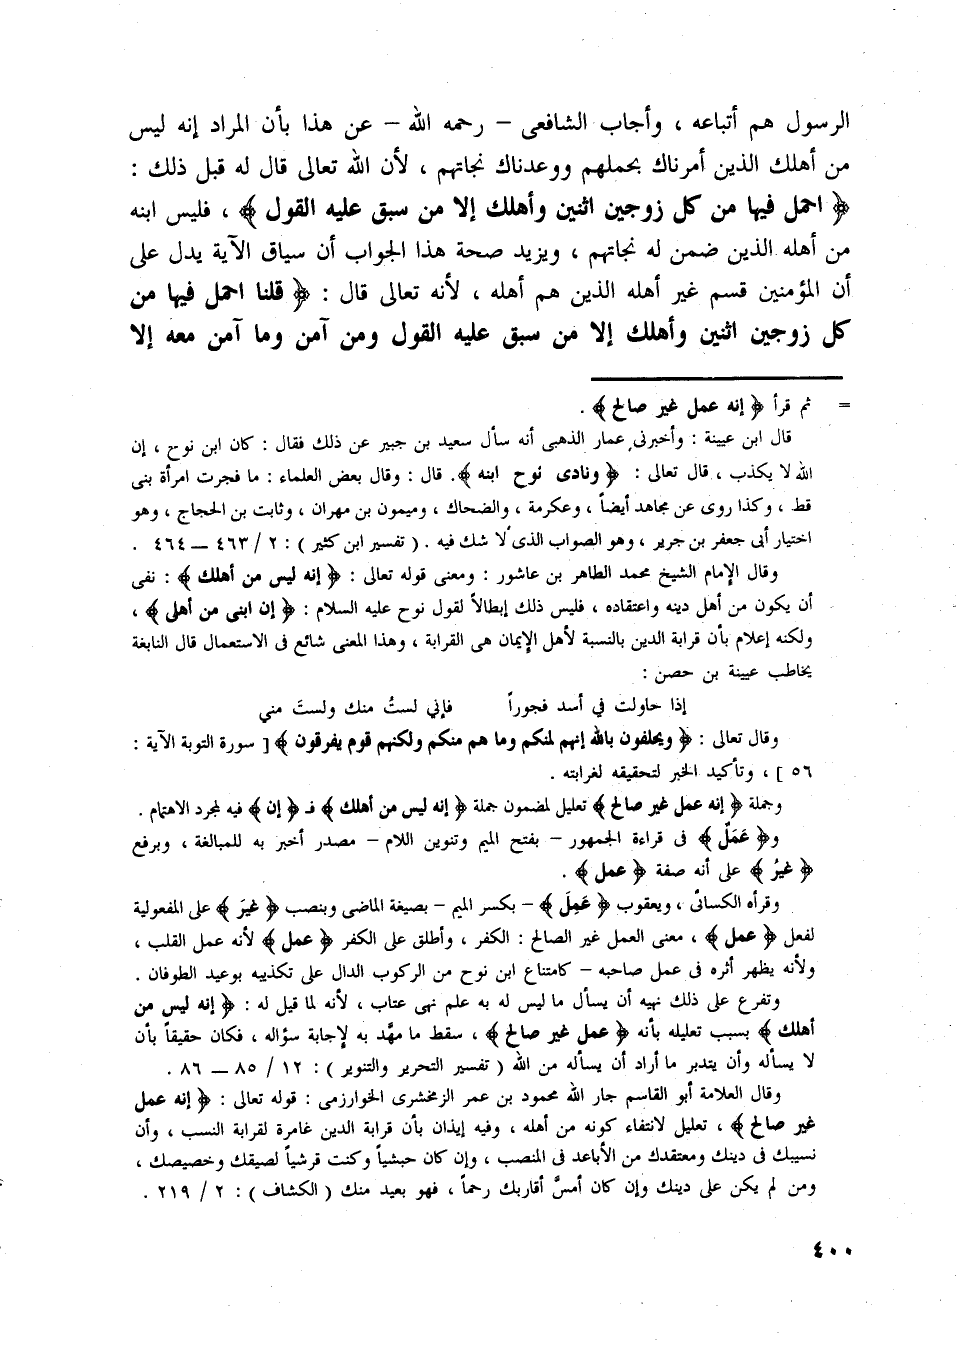 الرسول هم أتباعه ، وأجاب الشافعى – رحمه الله – عن هذا بأن المراد إنه ليس
من أهلك الذين أمرناك بحملهم ووعدناك نجاتهم ، لأن الله تعالى قال له قبل ذلك :
﴿ احمل فيها من كل زوجين اثنين وأهلك إلا من سبق عليه القول ﴾ ، فليس ابنه
من أهله الذين ضمن له نجاتهم ، ويزيد صحة هذا الجواب أن سياق الآية يدل على
أن المؤمنين قسم غير أهله الذين هم أهله ، لأنه تعالى قال : ﴿ قلنا احمل فيها من
كل زوجين اثنين وأهلك إلا من سبق عليه القول ومن آمن وما آمن معه إلا
= ثم قرأ ﴿ إنه عمل غير صالح ﴾ .
قال ابن عيينة : وأخبرنى عمار الذهبى أنه سأل سعيد بن جبير عن ذلك فقال : كان ابن نوح ، إن
الله لا يكذب ، قال تعالى : ﴿ ونادى نوح ابنه ﴾. قال : وقال بعض العلماء : ما فجرت امرأة بنى
قط ، وكذا روى عن مجاهد أيضاً ، وعكرمة ، والضحاك ، وميمون بن مهران ، وثابت بن الحجاج ، وهو
اختيار أبى جعفر بن جرير ، وهو الصواب الذى لا شك فيه . ( تفسير ابن كثير ) : ٢ / ٤٦٣ – ٤٦٤ .
وقال الإمام الشيخ محمد الطاهر بن عاشور : ومعنى قوله تعالى : ﴿ إنه ليس من أهلك ﴾ : نفى
أن يكون من أهل دينه واعتقاده ، فليس ذلك إبطالاً لقول نوح عليه السلام : ﴿ إن ابنى من أهلى ﴾ ،
ولكنه إعلام بأن قرابة الدين بالنسبة لأهل الإيمان هى القرابة ، وهذا المعنى شائع فى الاستعمال قال النابغة
يخاطب عيينة بن حصن :
إذا حاولت في أسد فجوراً فإني لستُ منك ولستَ مني
وقال تعالى : ﴿ ويحلفون بالله إنهم لمنكم وما هم منكم ولكنهم قوم يفرقون ﴾ [ سورة التوبة الآية :
٥٦ ] ، وتأكيد الخبر لتحقيقه لغرابته .
وجملة ﴿ إنه عمل غير صالح ﴾ تعليل لمضمون جملة ﴿ إنه ليس من أهلك ﴾ فـ ﴿ إن ﴾ فيه لمجرد الاهتمام .
و﴿ عَمَلٌ ﴾ فى قراءة الجمهور – بفتح الميم وتنوين اللام – مصدر أخبر به للمبالغة ، وبرفع
﴿ غيرُ ﴾ على أنه صفة ﴿ عمل ﴾ .
وقرأه الكسائى ، ويعقوب ﴿ عَمِلَ ﴾ – بكسر الميم – بصيغة الماضى وبنصب ﴿ غيرَ ﴾ على المفعولية
لفعل ﴿ عمل ﴾ ، معنى العمل غير الصالح : الكفر ، وأطلق على الكفر ﴿ عمل ﴾ لأنه عمل القلب ،
ولأنه يظهر أثره فى عمل صاحبه – كامتناع ابن نوح من الركوب الدال على تكذيبه بوعيد الطوفان .
وتفرع على ذلك نهيه أن يسأل ما ليس له به علم نهى عتاب ، لأنه لما قيل له : ﴿ إنه ليس من
أهلك ﴾ بسبب تعليله بأنه ﴿ عمل غير صالح ﴾ ، سقط ما مهَّد به لإجابة سؤاله ، فكان حقيقاً بأن
لا يسأله وأن يتدبر ما أراد أن يسأله من الله ( تفسير التحرير والتنوير ) : ١٢ / ٨٥ – ٨٦ .
وقال العلامة أبو القاسم جار الله محمود بن عمر الزمخشرى الخوارزمى : قوله تعالى : ﴿ إنه عمل
غير صالح ﴾ ، تعليل لانتفاء كونه من أهله ، وفيه إيذان بأن قرابة الدين غامرة لقرابة النسب ، وأن
نسيبك فى دينك ومعتقدك من الأباعد فى المنصب ، وإن كان حبشياً وكنت قرشياً لصيقك وخصيصك ،
ومن لم يكن على دينك وإن كان أمسَّ أقاربك رحماً ، فهو بعيد منك ( الكشاف ) : ٢ / ٢١٩ .
٤٠٠